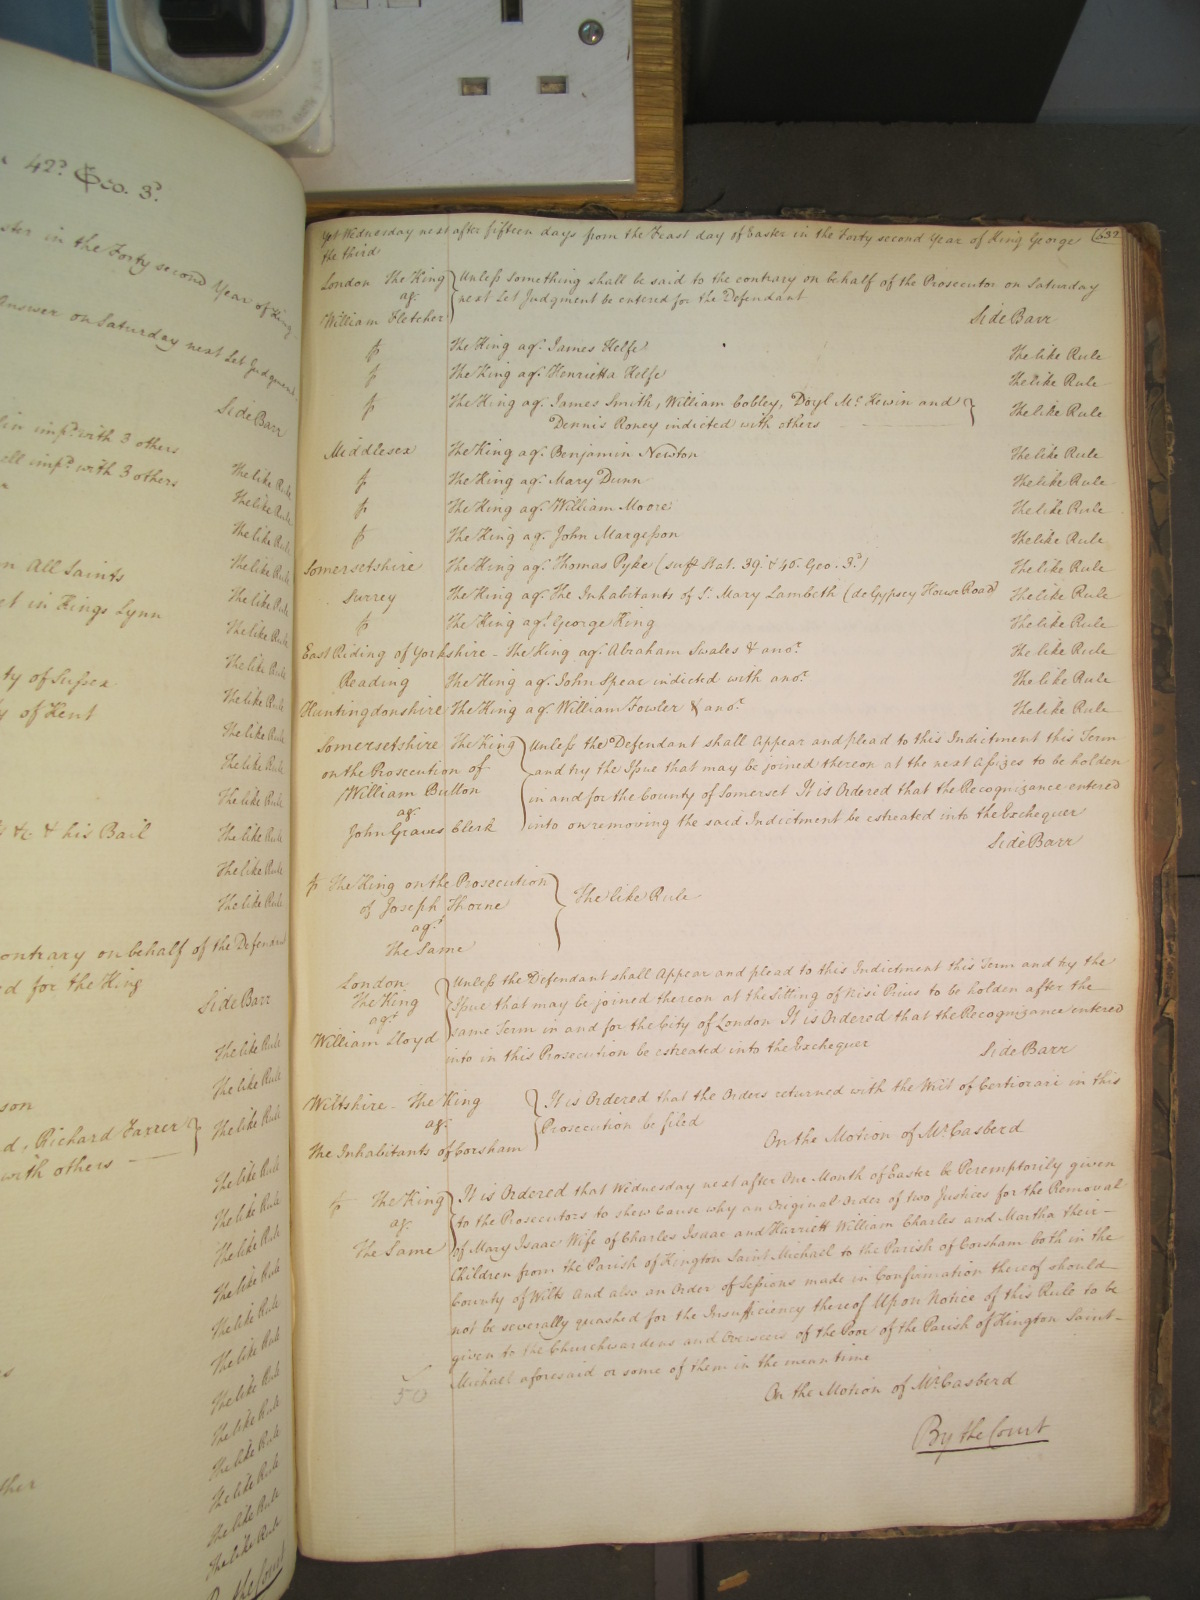 42? Geo. 3?
ster in the Forty second Year of King
Answer on Saturday next Let Judgment
Side Barr
lin imp? with 3 others
ell imp? with 3 others
The like Rule
The like Rule
The like Rule
n All Saints
The like Rule
t in Kings Lynn
The like Rule
The like Rule
ty of Sussex
The like Rule
y of Kent
The like Rule
The like Rule
The like Rule
The like Rule
&c & his Bail
The like Rule
The like Rule
The like Rule
ontrary on behalf of the Defendant
d for the King
Side Barr
The like Rule
The like Rule
son
d, Richard Farrer
The like Rule
with others
The like Rule
The like Rule
The like Rule
The like Rule
The like Rule
The like Rule
The like Rule
The like Rule
The like Rule
The like Rule
The like Rule
The like Rule
By the Court
Yet Wednesday next after fifteen days from the Feast day of Easter in the Forty second Year of King George 632
the third
London The King Unless Something shall be said to the contrary on behalf of the Prosecutor on Saturday
ag? next Let Judgment be entered for the Defendant
William Fletcher Side Barr
The King ag? James Kelfe The like Rule
The King ag? Henrietta Kelfe The like Rule
The King ag? James Smith, William Cobley, Doyl Mc Kewin and The like Rule
Dennis Roney indicted with others
Middlesex The King ag? Benjamin Newton The like Rule
The King ag? Mary Dunn The like Rule
The King ag? William Moore The like Rule
The King ag? John Margesson The like Rule
Somersetshire The King ag? Thomas Pyke (sup? Stat. 39. & 40. Geo. 3?) The like Rule
Surrey The King ag? The Inhabitants of St Mary Lambeth (de Gypsey House Road The like Rule
The King ag? George King The like Rule
East Riding of Yorkshire - The King ag? Abraham Swales & ano? The like Rule
Reading The King ag? John Spear indicted with ano? The like Rule
Huntingdonshire The King ag? William Fowler & ano? The like Rule
Somersetshire The King Unless the Defendant shall Appear and plead to this Indictment this Term
on the Prosecution of and try the Issue that may be joined thereon at the next Assizes to be holden
William Button in and for the County of Somerset It is Ordered that the Recognizance entered
ag?
John Graves Clerk into on removing the said Indictment be estreated into the Exchequer
Side Barr
The King on the Prosecution
of Joseph Thorne The like Rule
ag?
The Same
London Unless the Defendant shall Appear and plead to this Indictment this Term and try the
The King Issue that may be joined thereon at the Sitting of Nisi Prius to be holden after the
ag? same Term in and for the City of London It is Ordered that the Recognizance entered
William Lloyd into in this Prosecution be estreated into the Exchequer Side Barr
Wiltshire - The King It is Ordered that the Orders returned with the Writ of Certiorari in this
ag? Prosecution be filed
The Inhabitants of Corsham On the Motion of Mr Casberd
The King It is Ordered that Wednesday next after One Month of Easter be Peremptorily given
ag? to the Prosecutors to shew Cause why an Original Order of two Justices for the Removal
The Same of Mary Isaac Wife of Charles Isaac and Harriett William Charles and Martha their
Children from the Parish of Kington Saint Michael to the Parish of Corsham both in the
County of Wilts And also an Order of Sessions made in Confirmation thereof should
not be severally quashed for the Insufficiency thereof Upon Notice of this Rule to be
given to the Churchwardens and Overseers of the Poor of the Parish of Kington Saint
Michael aforesaid or some of them in the mean time
50
On the Motion of Mr Casberd
By the Court